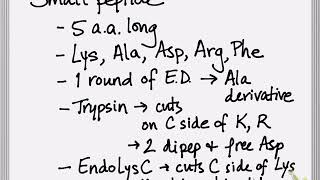 Small peptide
- 5 a.a. long
- Lys, Ala, Asp, Arg, Phe
- 1 round of E.D. → Ala
derivative
- Trypsin → cuts
on C side of K, R
→ 2 dipep & free Asp
- EndoLysC → cuts C side of Lys